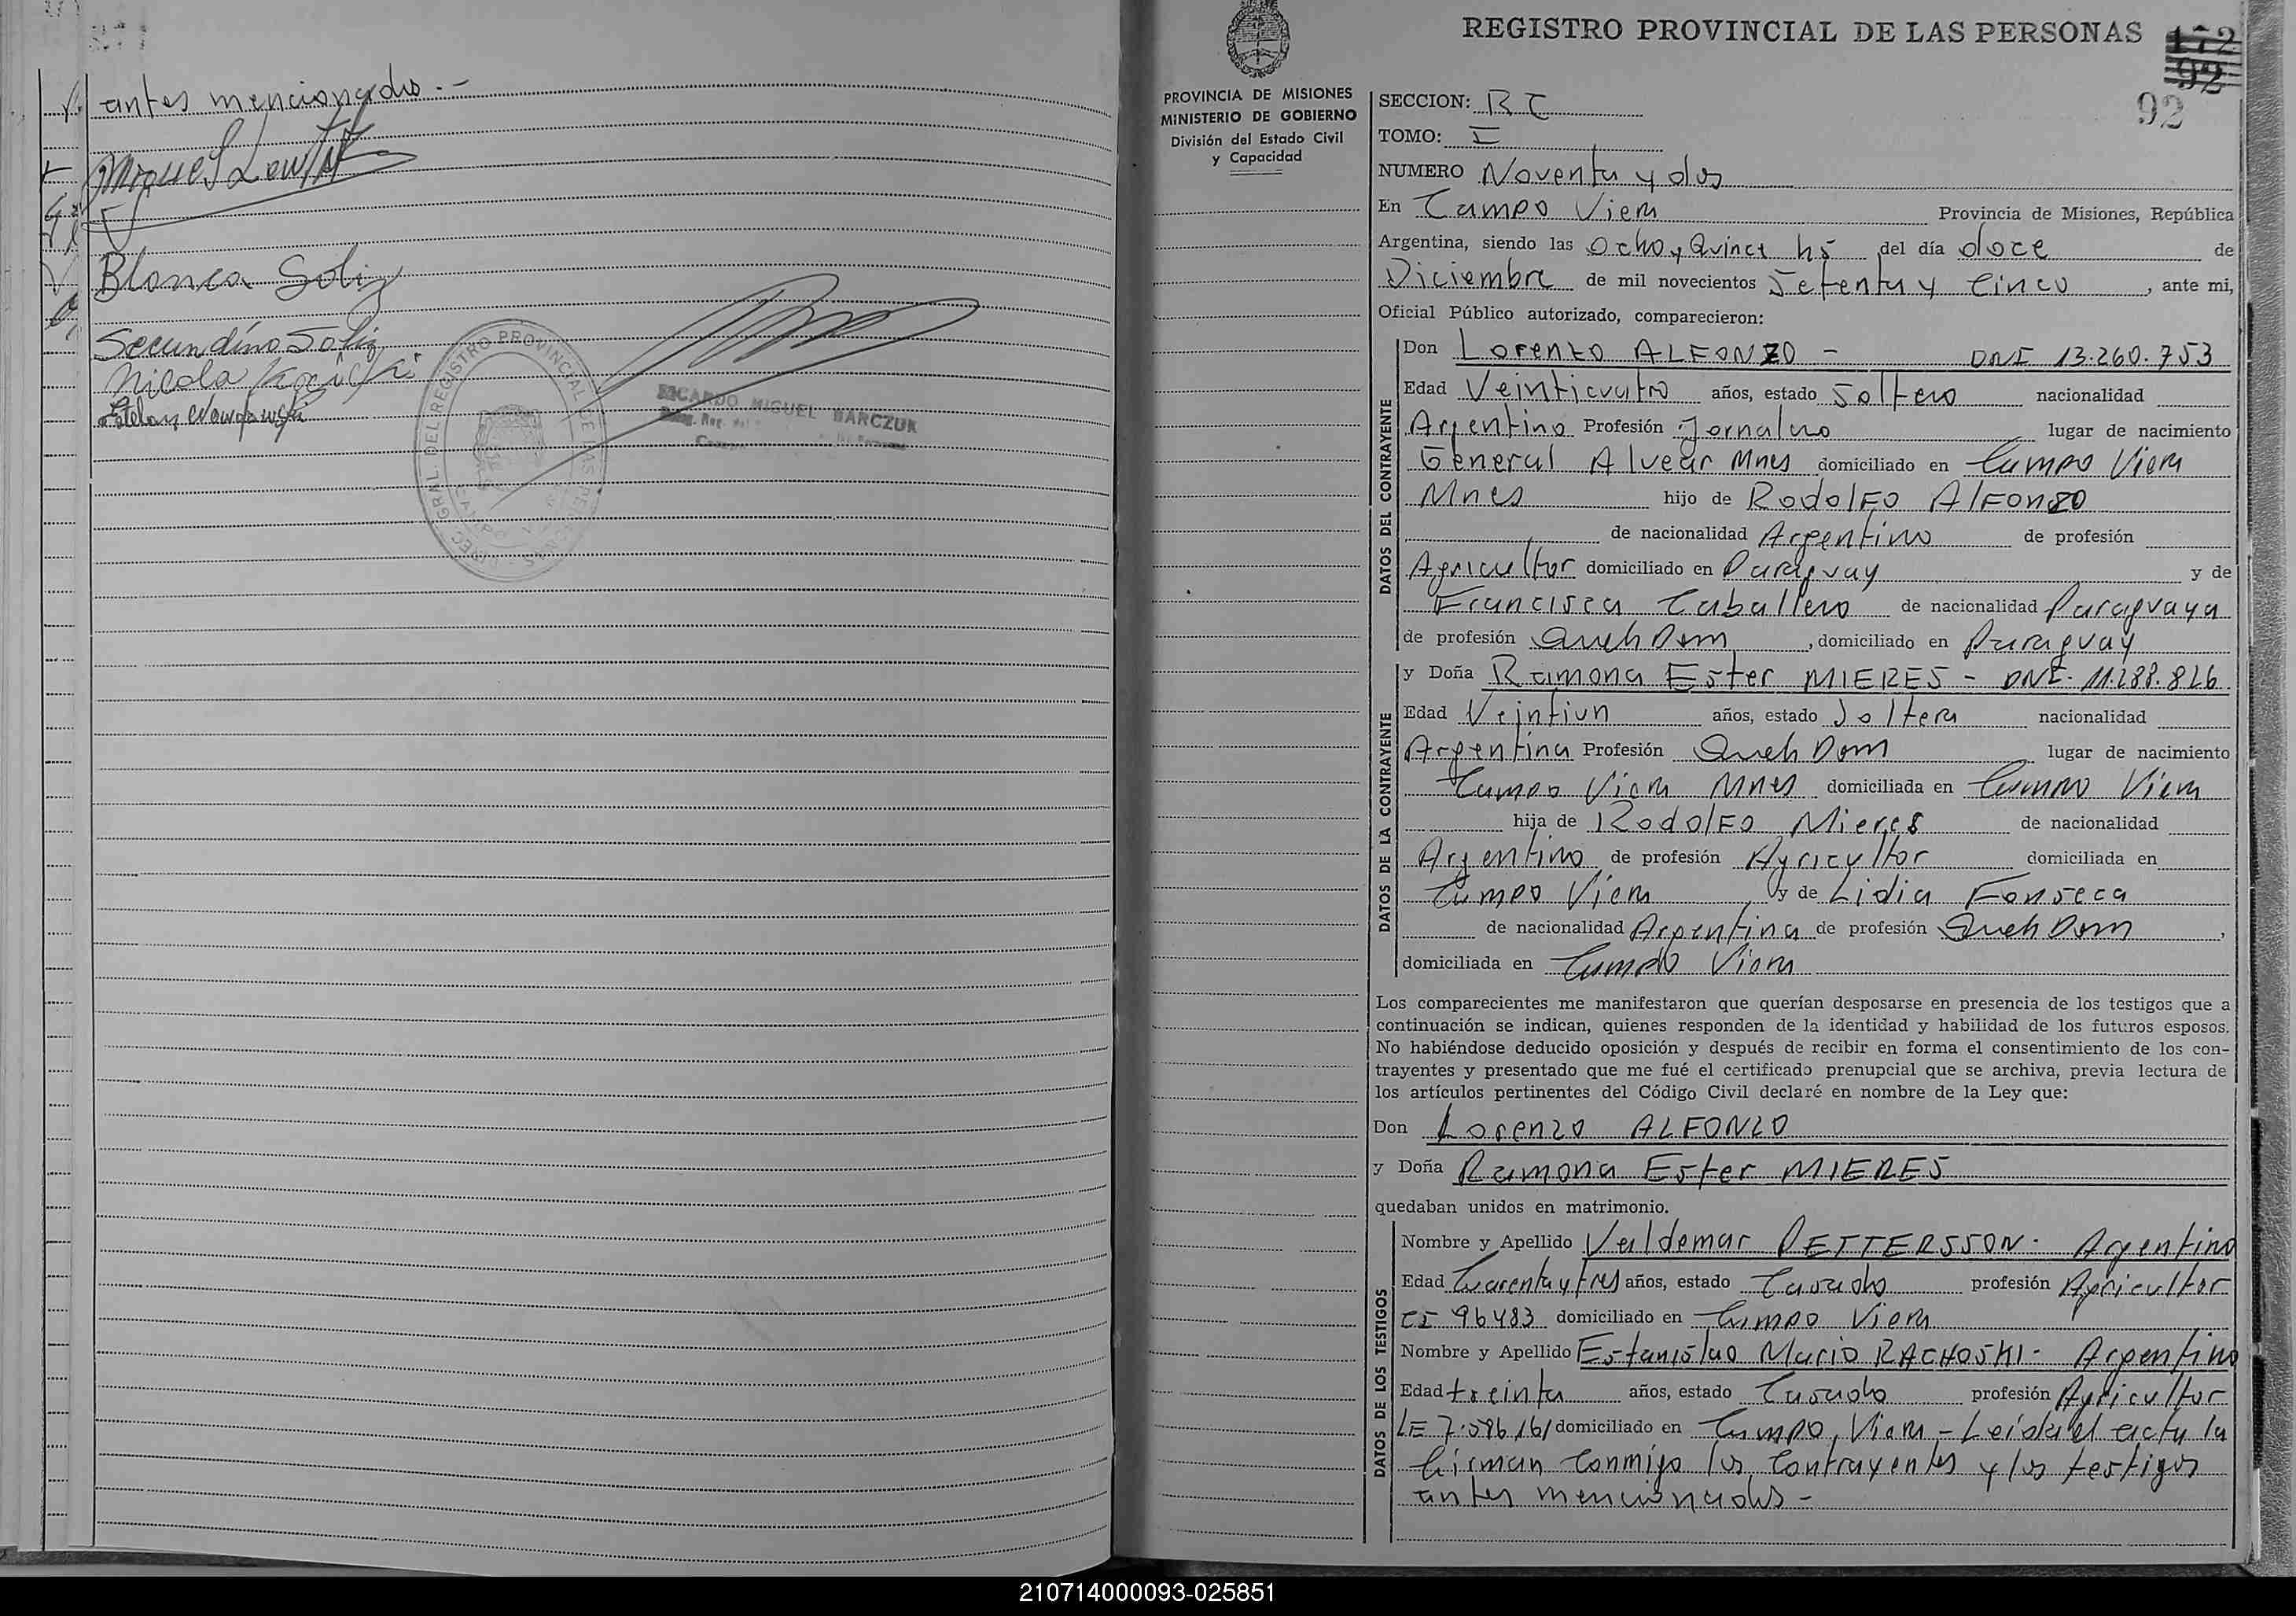 antes mencionados.-
Miguel
Blanca Soliz
Secundino Soliz
Nicola
Esteban
GRAL. DEL REGISTRO PROVINCIAL DE LAS PERSONAS
RICARDO MIGUEL BARCZUK
REGISTRO PROVINCIAL DE LAS PERSONAS
172
92
92
PROVINCIA DE MISIONES
MINISTERIO DE GOBIERNO
División del Estado Civil
y Capacidad
SECCION:
TOMO: I
NUMERO Noventa y dos
En Campo Viera Provincia de Misiones, República
Argentina, siendo las Ocho y Quince hs del día doce de
Diciembre de mil novecientos Setenta y Cinco, ante mi,
Oficial Público autorizado, comparecieron:
DATOS DEL CONTRAYENTE
Don Lorenzo ALFONZO - DNI 13.260.753
Edad Veinticuatro años, estado Soltero nacionalidad
Argentino Profesión Jornalero lugar de nacimiento
General Alvear Mnes domiciliado en Campo Viera
Mnes hijo de Rodolfo Alfonzo
de nacionalidad Argentino de profesión
Agricultor domiciliado en Paraguay y de
Francisca Caballero de nacionalidad Paraguaya
de profesión Queh Dom, domiciliado en Paraguay
DATOS DE LA CONTRAYENTE
y Doña Ramona Ester MIERES - DNI. 11.288.826
Edad Veintiun años, estado Soltera nacionalidad
Argentina Profesión Queh Dom lugar de nacimiento
Campo Viera Mnes domiciliada en Campo Viera
hija de Rodolfo Mieres de nacionalidad
Argentino de profesión Agricultor domiciliada en
Campo Viera y de Lidia Fonseca
de nacionalidad Argentina de profesión Queh Dom,
domiciliada en Campo Viera
Los comparecientes me manifestaron que querían desposarse en presencia de los testigos que a
continuación se indican, quienes responden de la identidad y habilidad de los futuros esposos.
No habiéndose deducido oposición y después de recibir en forma el consentimiento de los con-
trayentes y presentado que me fué el certificado prenupcial que se archiva, previa lectura de
los artículos pertinentes del Código Civil declaré en nombre de la Ley que:
Don Lorenzo ALFONZO
y Doña Ramona Ester MIERES
quedaban unidos en matrimonio.
DATOS DE LOS TESTIGOS
Nombre y Apellido Valdemar PETTERSSON - Argentino
Edad Cuarenta y tres años, estado Casado profesión Agricultor
CI 96483 domiciliado en Campo Viera
Nombre y Apellido Estanislao Mario RACHOSKI - Argentino
Edad treinta años, estado Casado profesión Agricultor
LE domiciliado en Campo Viera - Leida el acta la
firman Conmigo los Contrayentes y los testigos
antes mencionados -
210714000093-025851